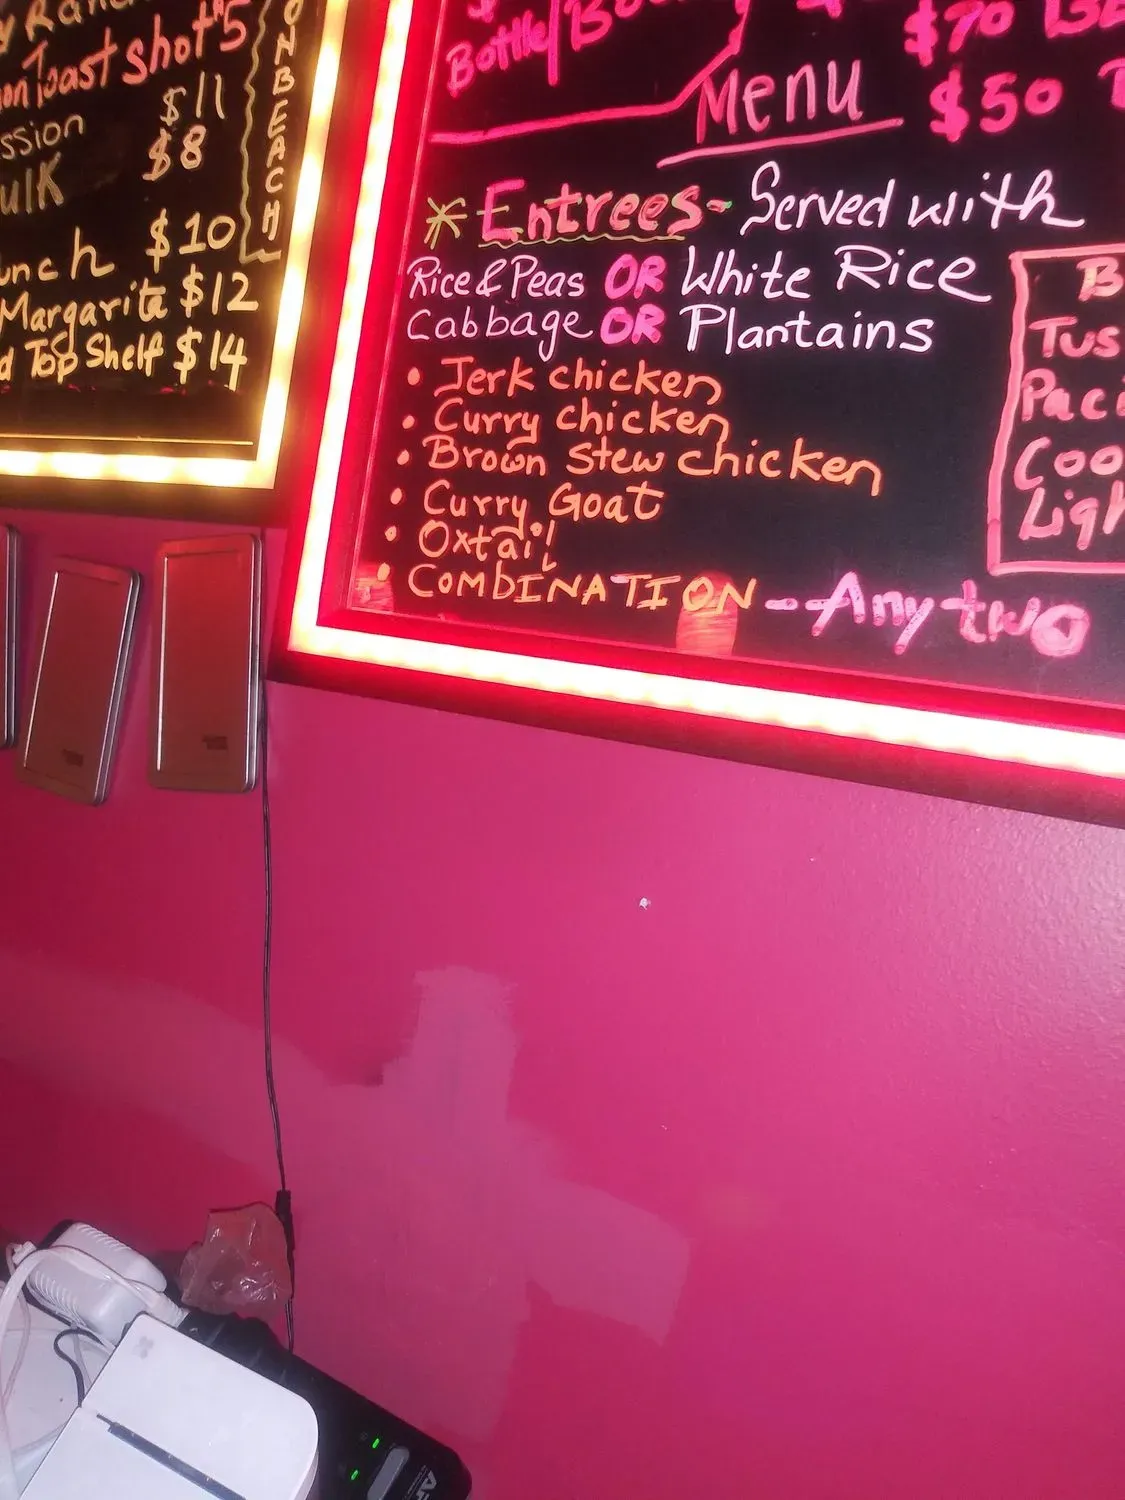 Toast Shot $5
$11
$8
$10
Margarita $12
Top Shelf $14
ONBEACH
Bottle/
$70
$50
Menu
* Entrees - Served with
Rice & Peas OR White Rice
Cabbage OR Plantains
• Jerk chicken
• Curry chicken
• Brown Stew chicken
• Curry Goat
• Oxtail
• COMBINATION -- Any two